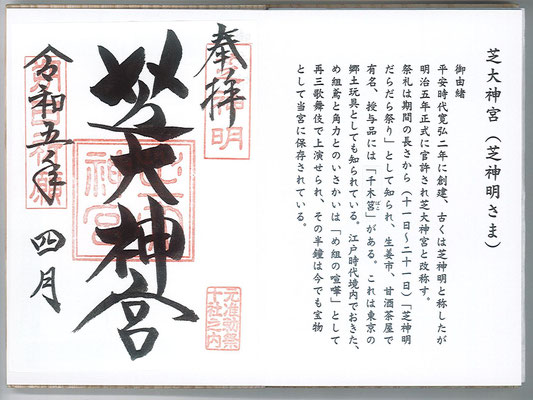 芝大神宮（芝神明さま）
御由緒
平安時代寛弘二年に創建、古くは芝神明と称したが
明治五年正式に官許され芝大神宮と改称す。
祭礼は期間の長さから（十一日～二十一日）「芝神明
だらだら祭り」として知られ、生姜市、甘酒茶屋で
有名、授与品には「千木筥」がある。これは東京の
郷土玩具としても知られている。江戸時代境内でおきた、
め組鳶と角力とのいさかいは「め組の喧嘩」として
再三歌舞伎で上演せられ、その半鐘は今でも宝物
として当宮に保存されている。
奉拝
芝大神宮
令和五年 四月
元准勅祭
十社之内